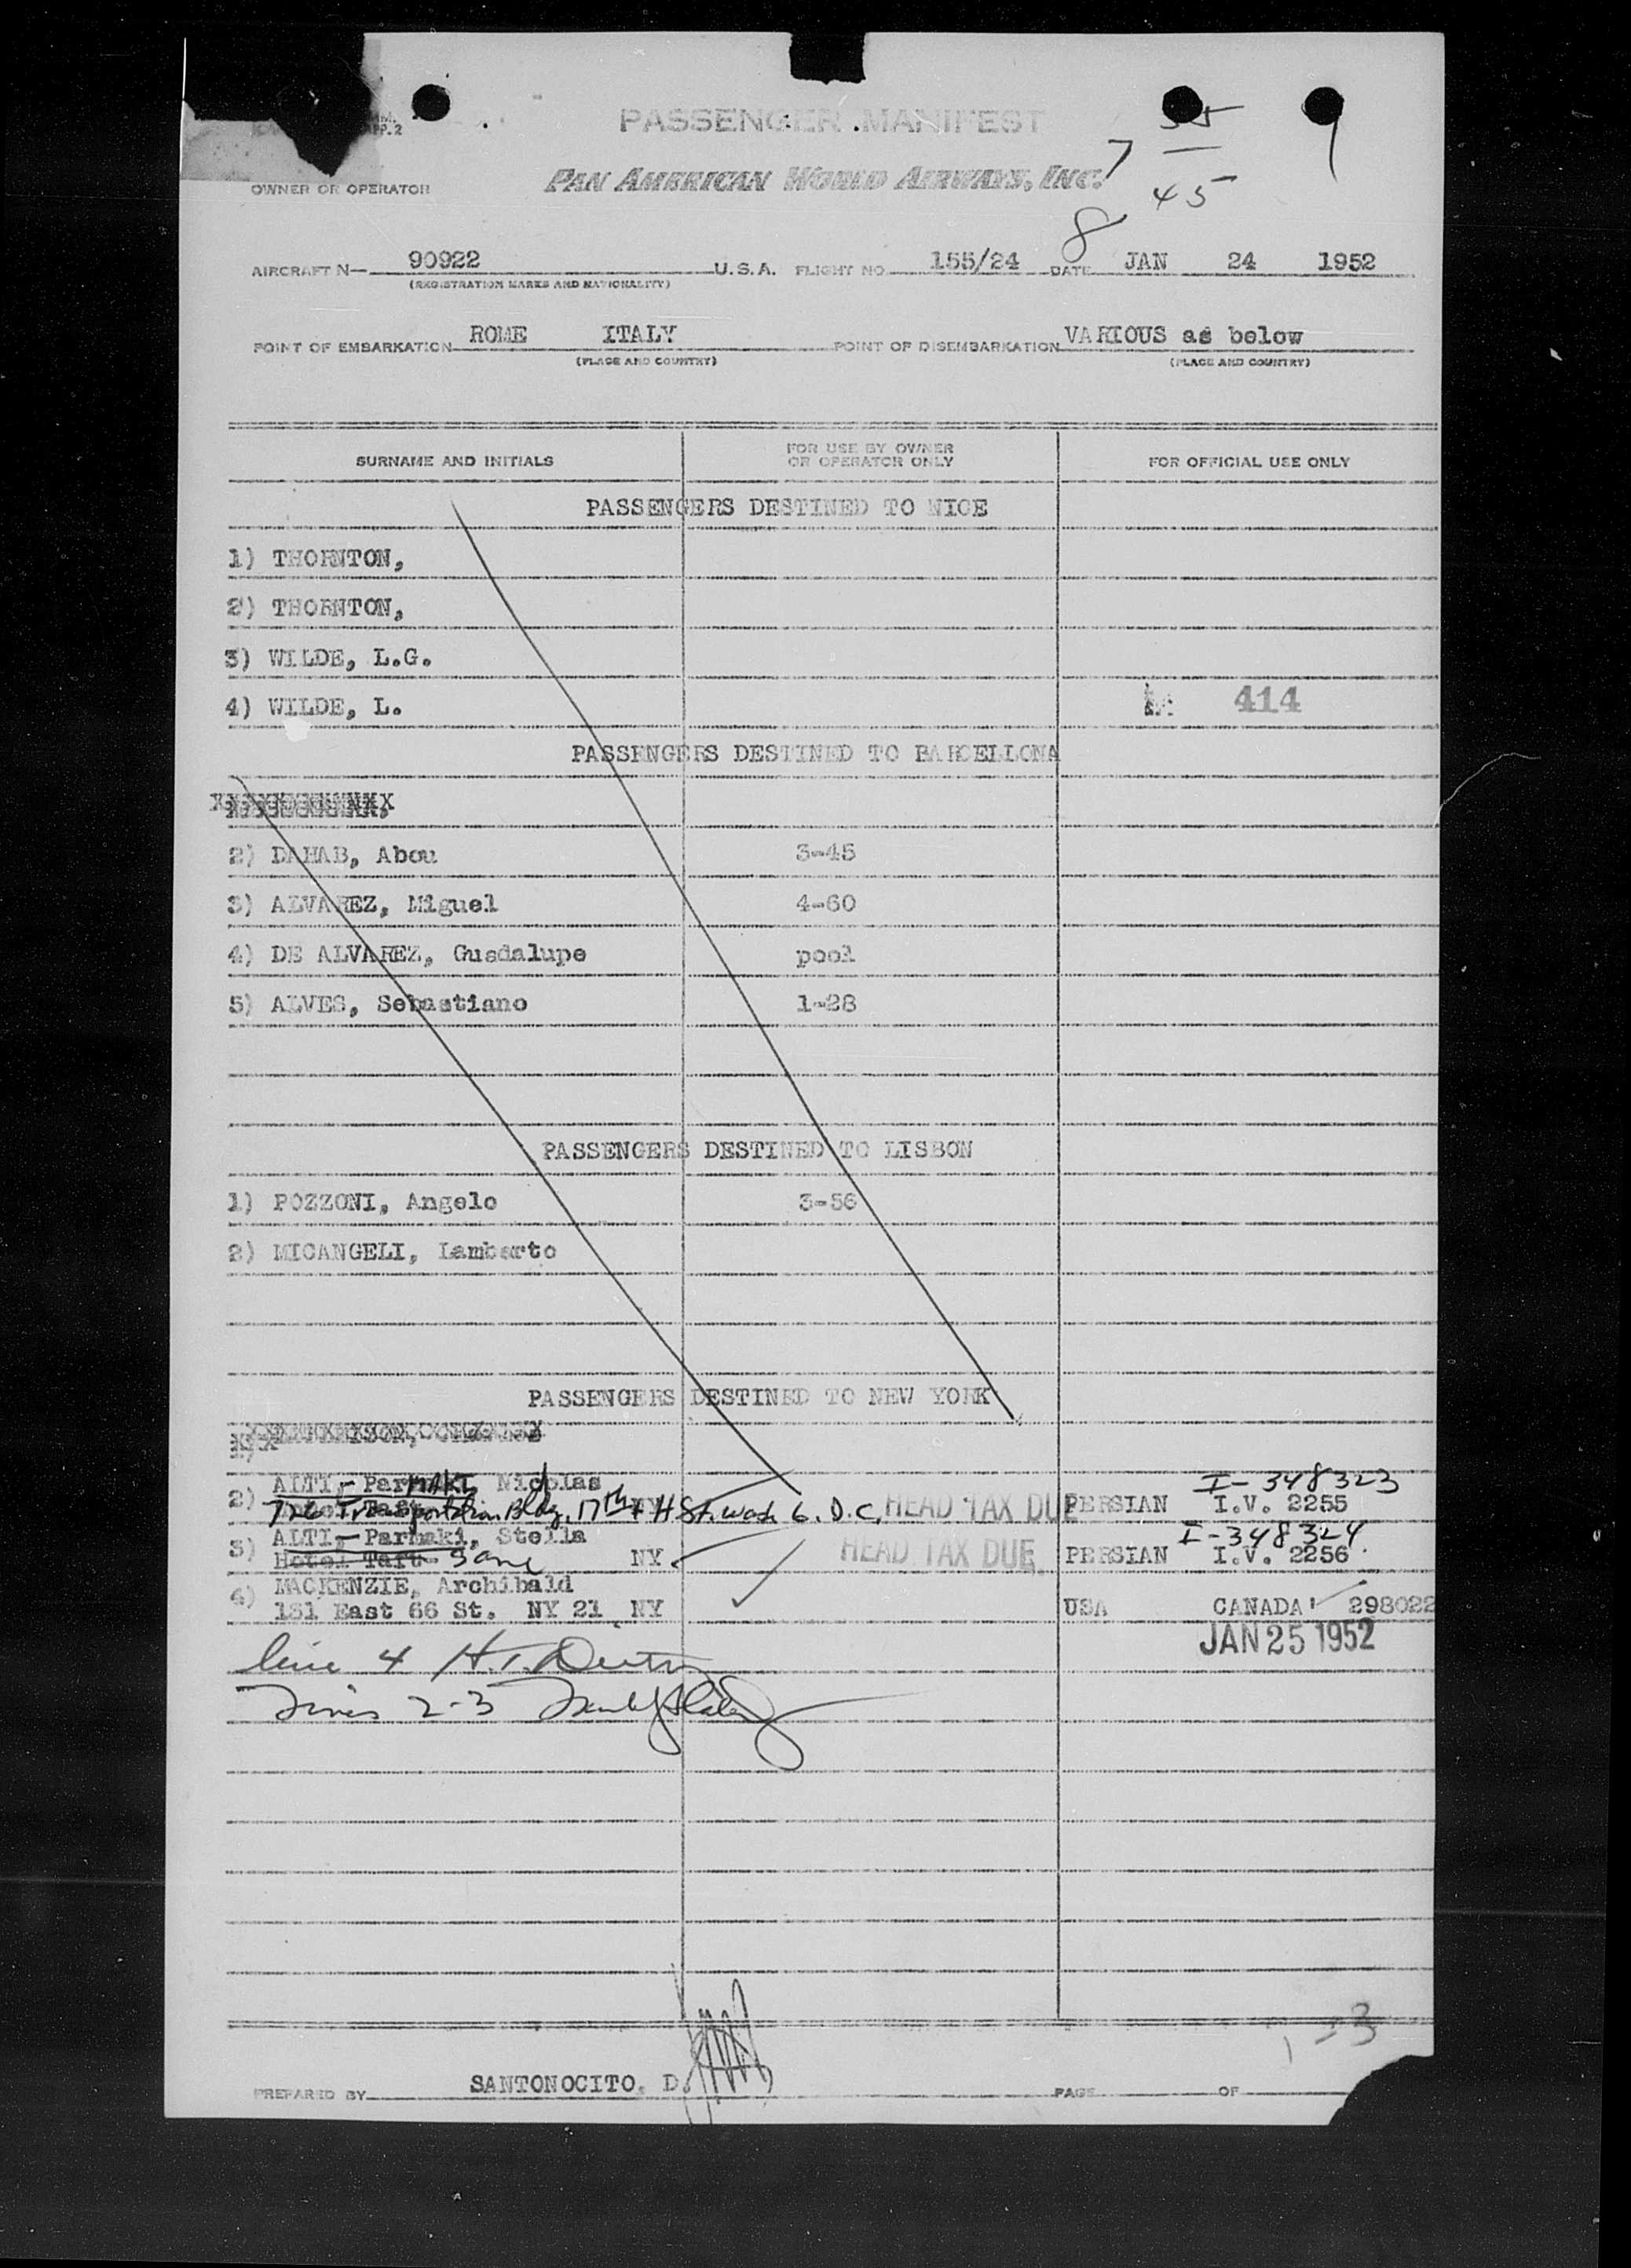 PASSENGER MANIFEST
7 35 9
OWNER OR OPERATOR PAN AMERICAN WORLD AIRWAYS, INC.
45
8
AIRCRAFT N- 90922 U.S.A. FLIGHT NO. 155/24 DATE JAN 24 1952
(REGISTRATION MARKS AND NATIONALITY)
POINT OF EMBARKATION ROME ITALY POINT OF DISEMBARKATION VARIOUS as below
(PLACE AND COUNTRY) (PLACE AND COUNTRY)
SURNAME AND INITIALS FOR USE BY OWNER OR OPERATOR ONLY FOR OFFICIAL USE ONLY
PASSENGERS DESTINED TO NICE
1) THORNTON,
2) THORNTON,
3) WILDE, L.G.
4) WILDE, L. 414
PASSENGERS DESTINED TO BARCELLONA
2) DAHAB, Abou 3-45
3) ALVAREZ, Miguel 4-60
4) DE ALVAREZ, Guadalupe pool
5) ALVES, Sebastiano 1-28
PASSENGERS DESTINED TO LISBON
1) POZZONI, Angelo 3-56
2) MICANGELI, Lamberto
PASSENGERS DESTINED TO NEW YORK
2) ALTI-ParMAKI, Nicolas I-348323
726 Transportation Bldg. 17th & H St. Wash 6. D.C. HEAD TAX DUE PERSIAN I.V. 2255
3) ALTI-Parmaki, Stella I-348324
Hotel Taft Same NY HEAD TAX DUE PERSIAN I.V. 2256
4) MACKENZIE, Archibald
131 East 66 St. NY 21 NY USA CANADA 298022
JAN 25 1952
line 4 H.T.
Lines 2-3
1-3
PREPARED BY SANTONOCITO, D. PAGE OF